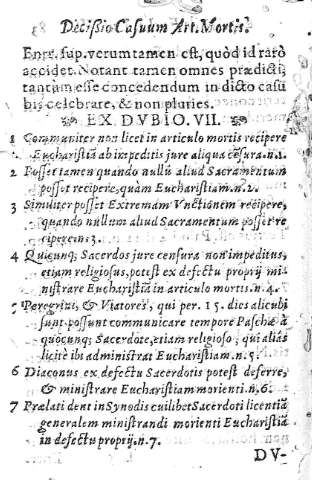 Decißio Casuum Art. Mortis.
Enr. sup. verum tamen est, quòd id rarò
accidet. Notant tamen omnes prædicti,
tantum esse concedendum in dicto casu
bis celebrare, & non pluries.
EX DVBIO. VII.
1 Communiter non licet in articulo mortis recipere
Eucharistiã ab impeditis jure aliqua cẽsura. n.1.
2 Posset tamen quando nullũ aliud Sacramentum
posset recipere, quàm Eucharistiam. n.2.
3 Similiter posset Extremam Vnctionem recipere,
quando nullum aliud Sacramentum posset re
cipere. n.3.
4 Quicunq; Sacerdos jure censura non impeditus,
etiam religiosus, potest ex defectu proprij mi-
nistrare Eucharistiã in articulo mortis. n.4.
5 Peregrini, & Viatores, qui per. 15. dies alicubi
sunt possunt communicare tempore Paschæ à
quocunq; Sacerdote, etiam religioso, qui aliàs
licitè ibi administrat Eucharistiam. n.5.
6 Diaconus ex defectu Sacerdotis potest deferre,
& ministrare Eucharistiam morienti. n.6.
7 Prælati dent in Synodis cuilibet Sacerdoti licentiã
generalem ministrandi morienti Eucharistiã
in defectu proprij. n.7.
DV-